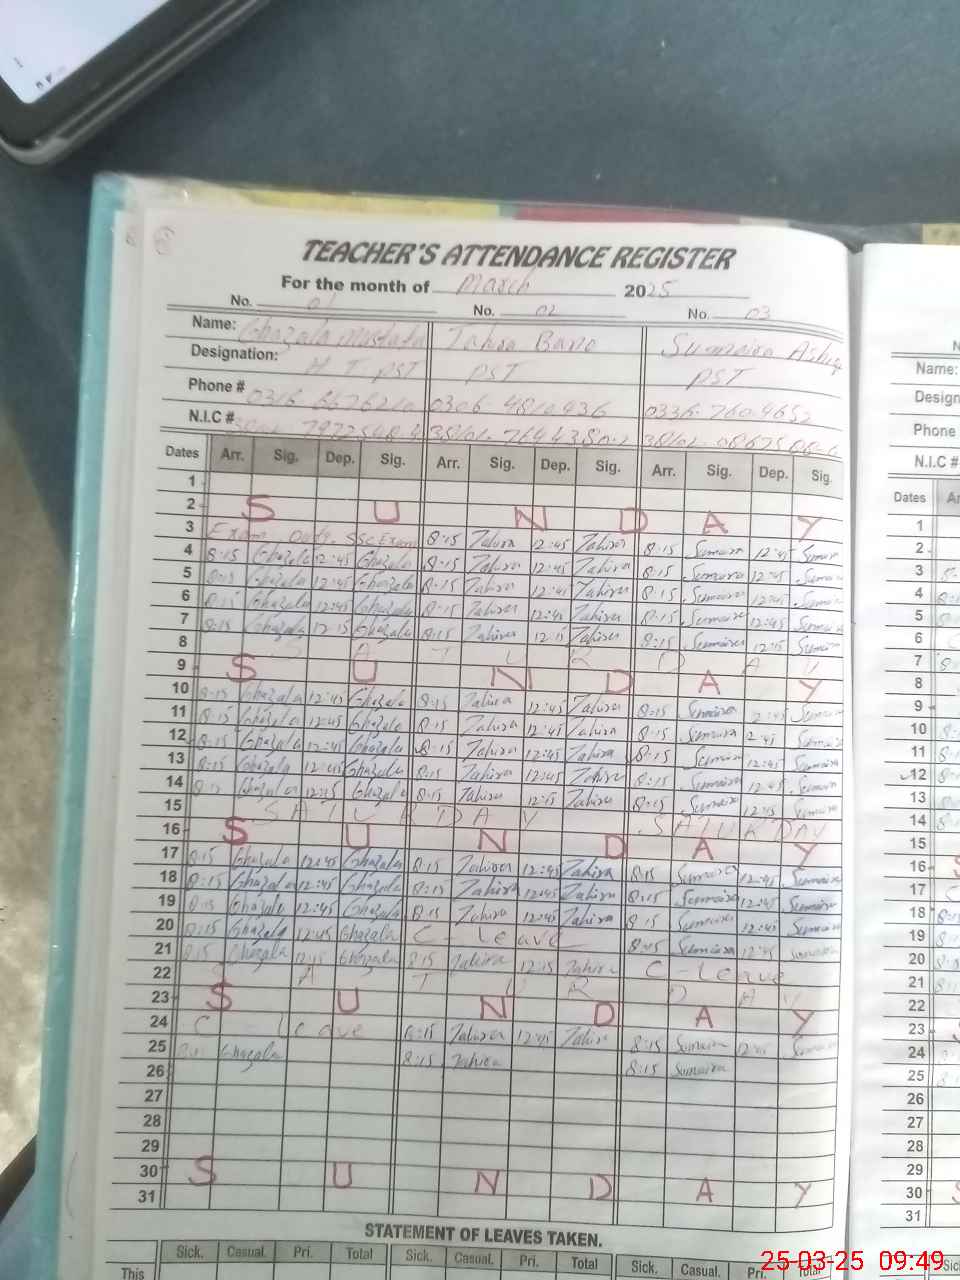 TEACHER'S ATTENDANCE REGISTER
For the month of March 2025
No. 01 No. 02 No. 03
Name: Ghazala Mustafa Tahira Bano Sumaira
Designation: H T PST PST PST
Phone # 0306-4810936 0336-7604652
N.I.C #
Dates Arr. Sig. Dep. Sig. Arr. Sig. Dep. Sig. Arr. Sig. Dep. Sig.
1
2 S U N D A Y
3 Exam Duty SSC Exam 8:15 Tahira 12:45 Tahira 8:15 Sumaira 12:45
4 8:15 Ghazala 12:45 Ghazala 8:15 Tahira 12:45 Tahira 8:15 Sumaira 12:45
5 8:15 Ghazala 12:45 Ghazala 8:15 Tahira 12:45 Tahira 8:15 Sumaira 12:45
6 8:15 Ghazala 12:45 Ghazala 8:15 Tahira 12:45 Tahira 8:15 Sumaira 12:45
7 8:15 Ghazala 12:15 Ghazala 8:15 Tahira 12:15 Tahira 8:15 Sumaira 12:15
8 S A T U R D A Y
9 S U N D A Y
10 8:15 Ghazala 12:45 Ghazala 8:15 Tahira 12:45 Tahira 8:15 Sumaira 2:45
11 8:15 Ghazala 12:45 Ghazala 8:15 Tahira 12:45 Tahira 8:15 Sumaira 2:45
12 8:15 Ghazala 12:45 Ghazala 8:15 Tahira 12:45 Tahira 8:15 Sumaira 12:45
13 8:15 Ghazala 12:45 Ghazala 8:15 Tahira 12:45 Tahira 8:15 Sumaira 12:45
14 8:15 Ghazala 12:15 Ghazala 8:15 Tahira 12:15 Tahira 8:15 Sumaira 12:15
15 S A T U R D A Y SATURDAY
16 S U N D A Y
17 8:15 Ghazala 12:45 Ghazala 8:15 Tahira 12:45 Tahira 8:15 Sumaira 12:45 Sumaira
18 8:15 Ghazala 12:45 Ghazala 8:15 Tahira 12:45 Tahira 8:15 Sumaira 12:45 Sumaira
19 8:15 Ghazala 12:45 Ghazala 8:15 Tahira 12:45 Tahira 8:15 Sumaira 12:45 Sumaira
20 8:15 Ghazala 12:45 Ghazala C - Leave Sumaira 12:45 Sumaira
21 8:15 Ghazala 12:15 Ghazala 8:15 Tahira 12:15 Tahira C - Leave
22 S A T U R D A Y
23 S U N D A Y
24 C - Leave 8:15 Tahira 12:45 Tahira 8:15 Sumaira 12:45 Sumaira
25 Ghazala 8:15 Tahira 8:15 Sumaira
26
27
28
29
30 S U N D A Y
31
STATEMENT OF LEAVES TAKEN.
Sick. Casual. Pri. Total Sick. Casual. Pri. Total Sick. Casual. Pri. Total
This
Name:
Phone #
N.I.C #
Dates
1
2
3
4
5
6
7
8
9
10
11
12
13
14
15
16
17
18
19
20
21
22
23
24
25
26
27
28
29
30
31
25-03-25 09:49